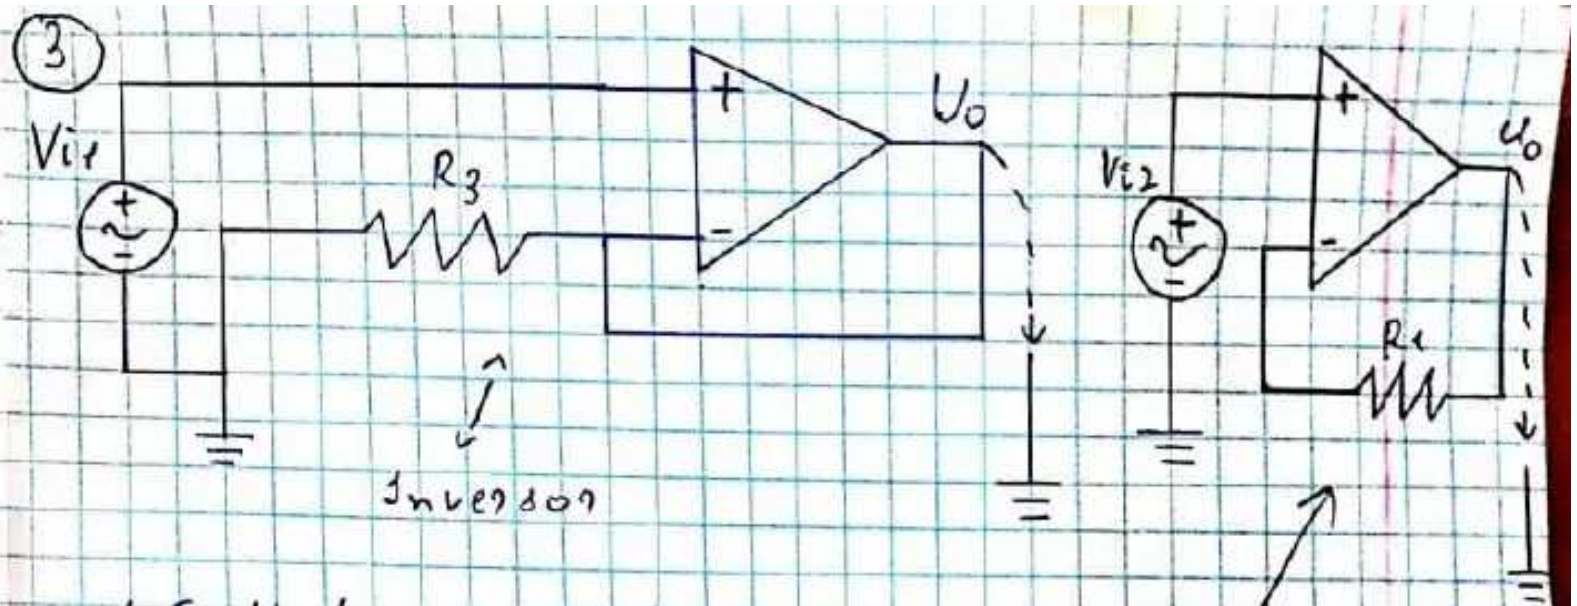 3
Vi1
+
~
-
R3
+
-
U0
Inversor
Vi2
+
~
-
+
-
U0
R1